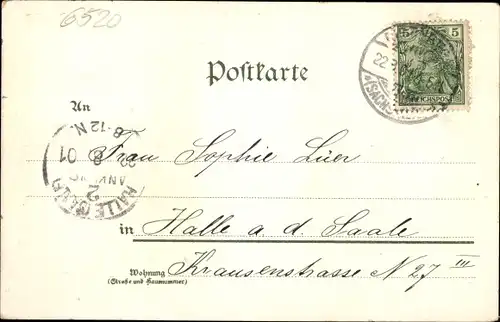 6520
5 5
REICHSPOST
Postkarte
An
8-12 N.
01
HALLE (SAALE)
Frau Sophie Lüer
in Halle a. d. Saale
Wohnung Krausenstrasse N 27 III
(Straße und Hausnummer)